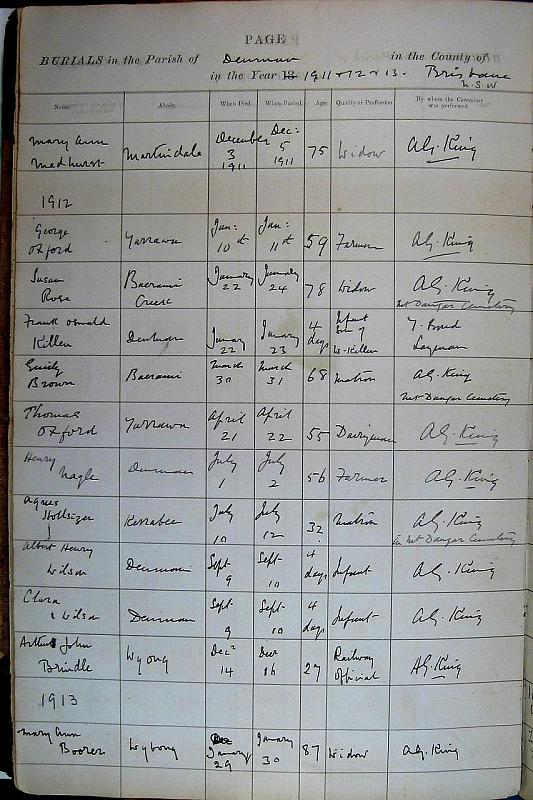 PAGE
BURIALS in the Parish of Denman in the County of
in the Year 18 1911 & 12 & 13. Brisbane
N.S.W
Name. Abode. When Died. When Buried. Age. Quality or Profession. By whom the Ceremony was performed.
Mary Ann Medhurst Martindale December 3 1911 Dec: 5 1911 75 Widow A.G. King
1912
George Oxford Yarrawa Jan: 10th Jan: 11th 59 Farmer A.G. King
Susan Rose Baerami Creek January 22 January 24 78 Widow A.G. King Mt Dangar Cemetery
Frank Oswald Killen Denman January 22 January 23 4 days Infant Son of W. Killen T. Bond Layman
Emily Brown Baerami March 30 March 31 68 Matron A.G. King Mt Dangar Cemetery
Thomas Oxford Yarrawa April 21 April 22 55 Dairyman A.G. King
Henry Nagle Denman July 1 July 2 56 Farmer A.G. King
Agnes Kerrabee July 10 July 12 32 Matron A.G. King in Mt Dangar Cemetery
Albert Henry Wilson Denman Sept 9 Sept 10 4 days Infant A.G. King
Clara Wilson Denman Sept 9 Sept 10 4 days Infant A.G. King
Arthur John Brindle Wyong Decr 14 Dec 16 27 Railway Official A.G. King
1913
Mary Ann Boorer Wybong January 29 January 30 87 Widow A.G. King